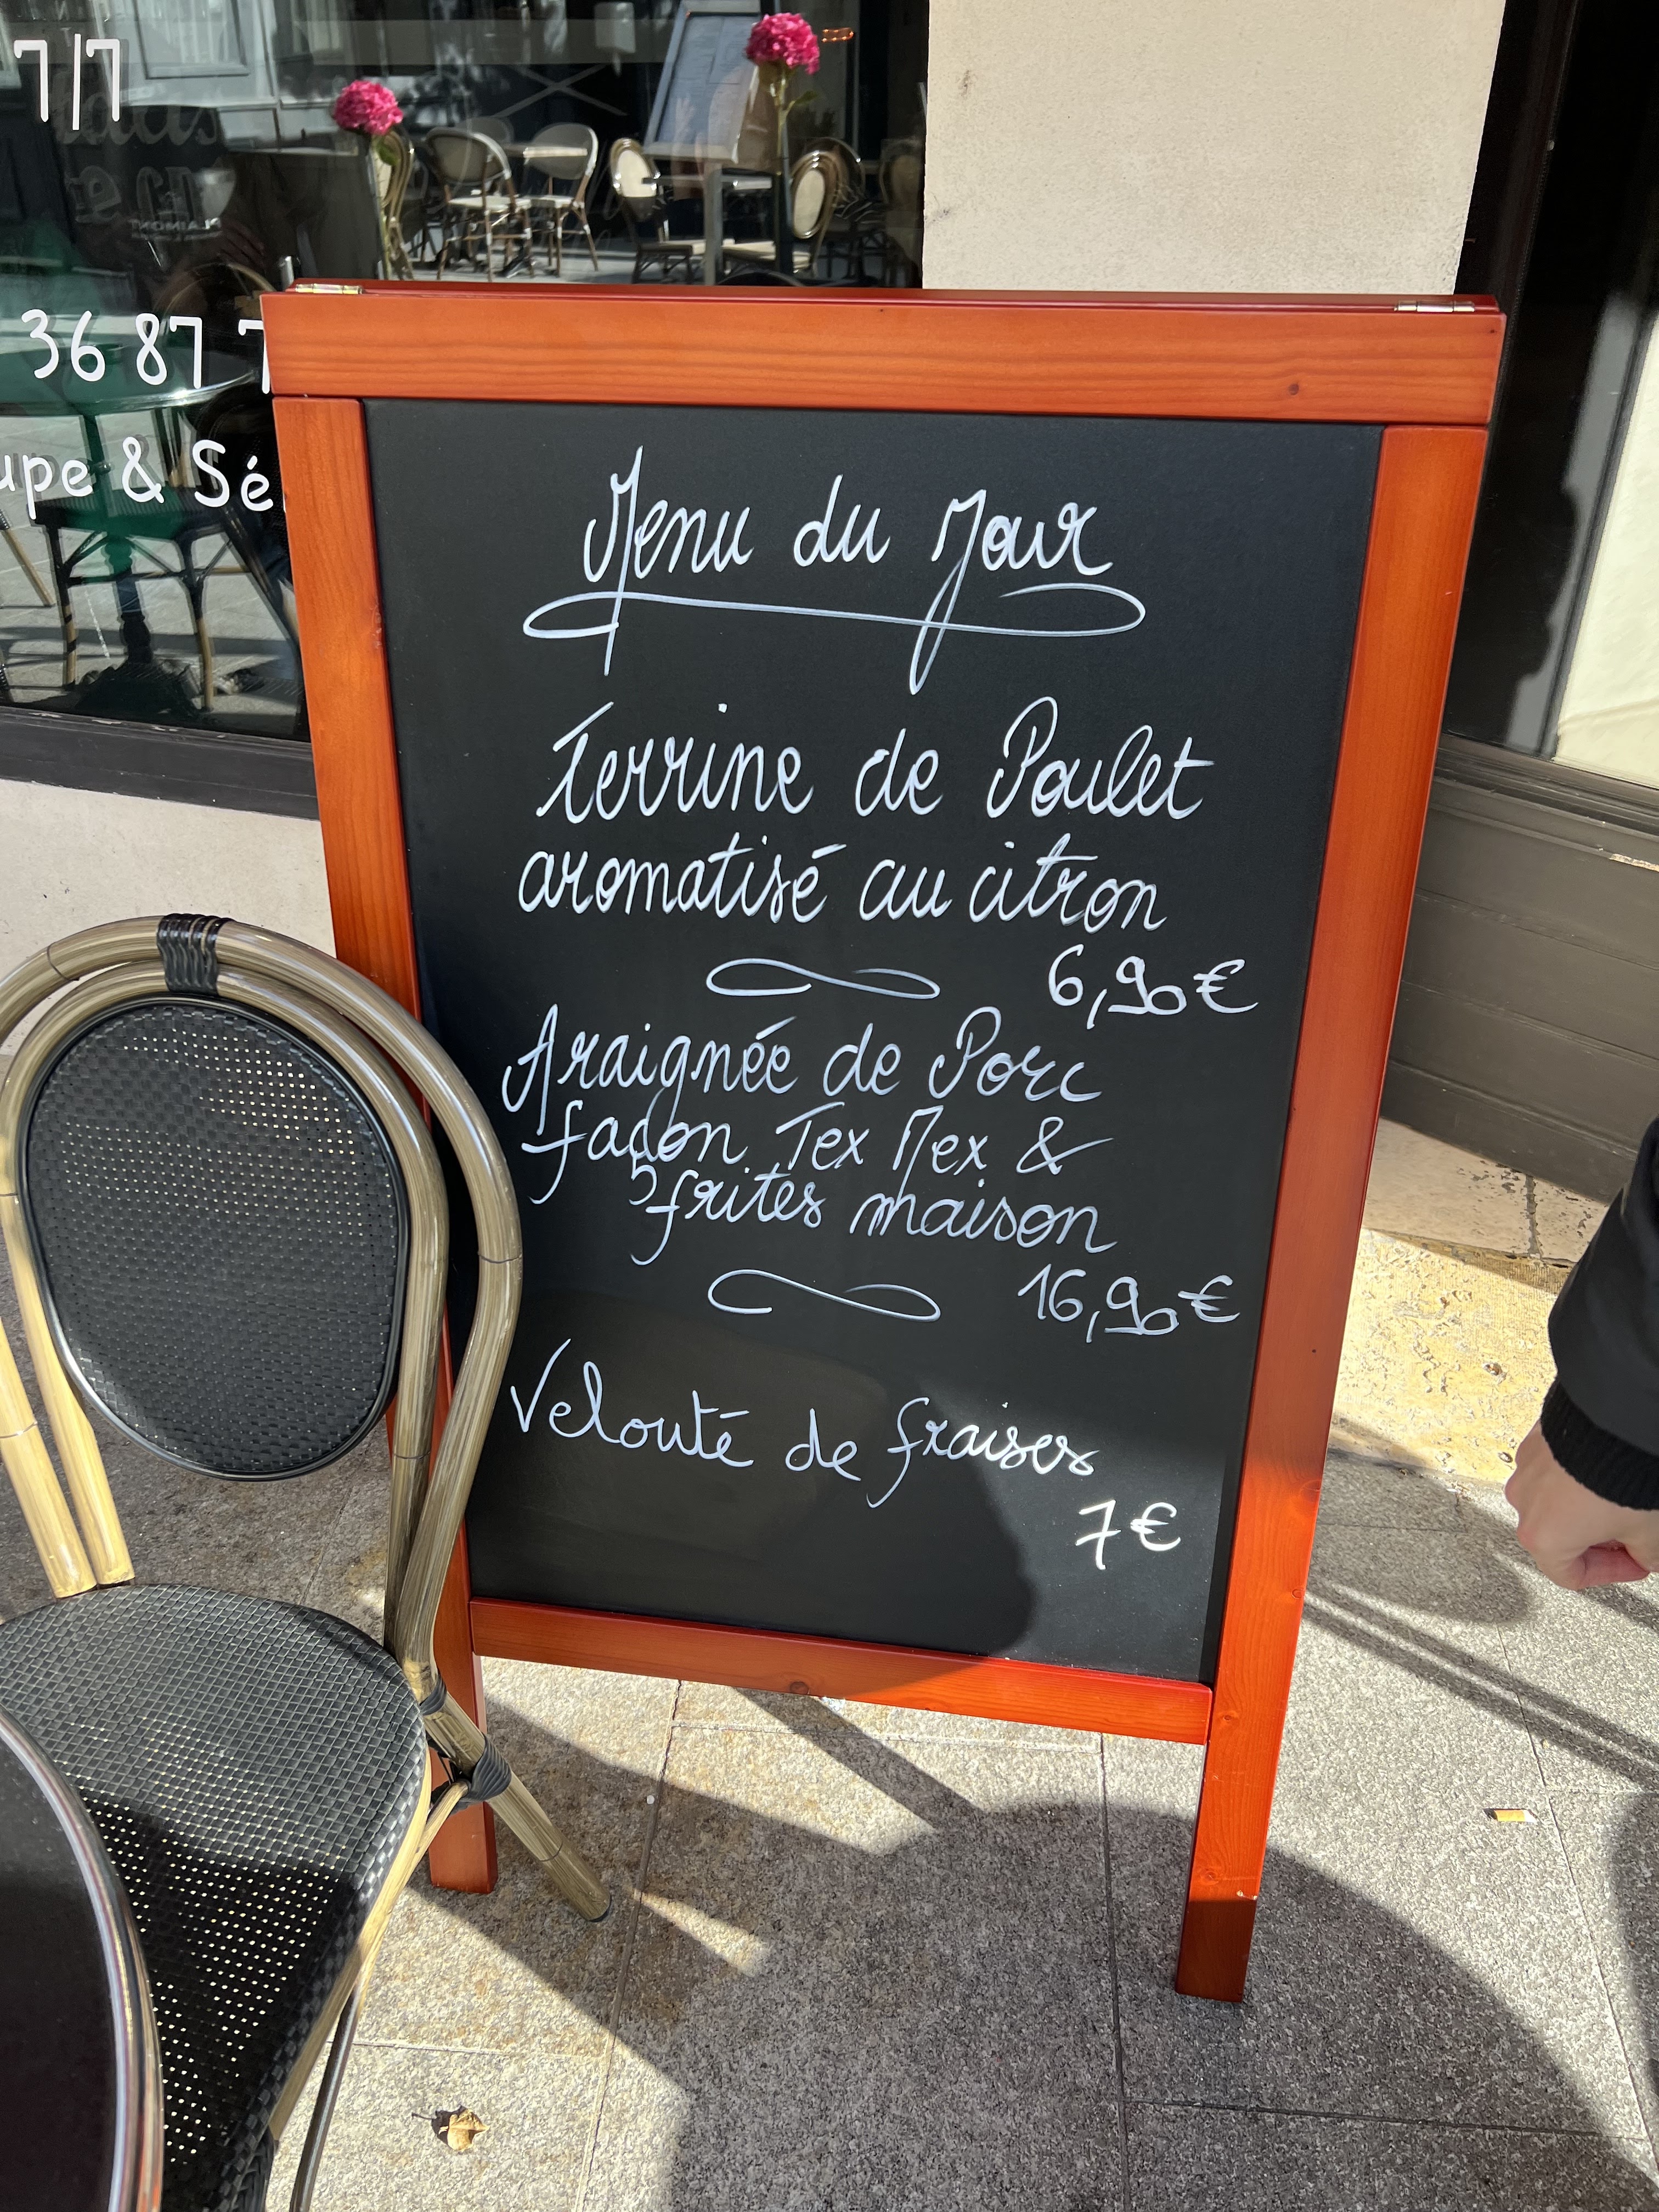 7/7
36 87 7
upe & Sé
Menu du Jour
Terrine de Poulet
aromatisé au citron
6,90€
Araignée de Porc
façon Tex Mex &
frites maison
16,90€
Velouté de fraises
7€